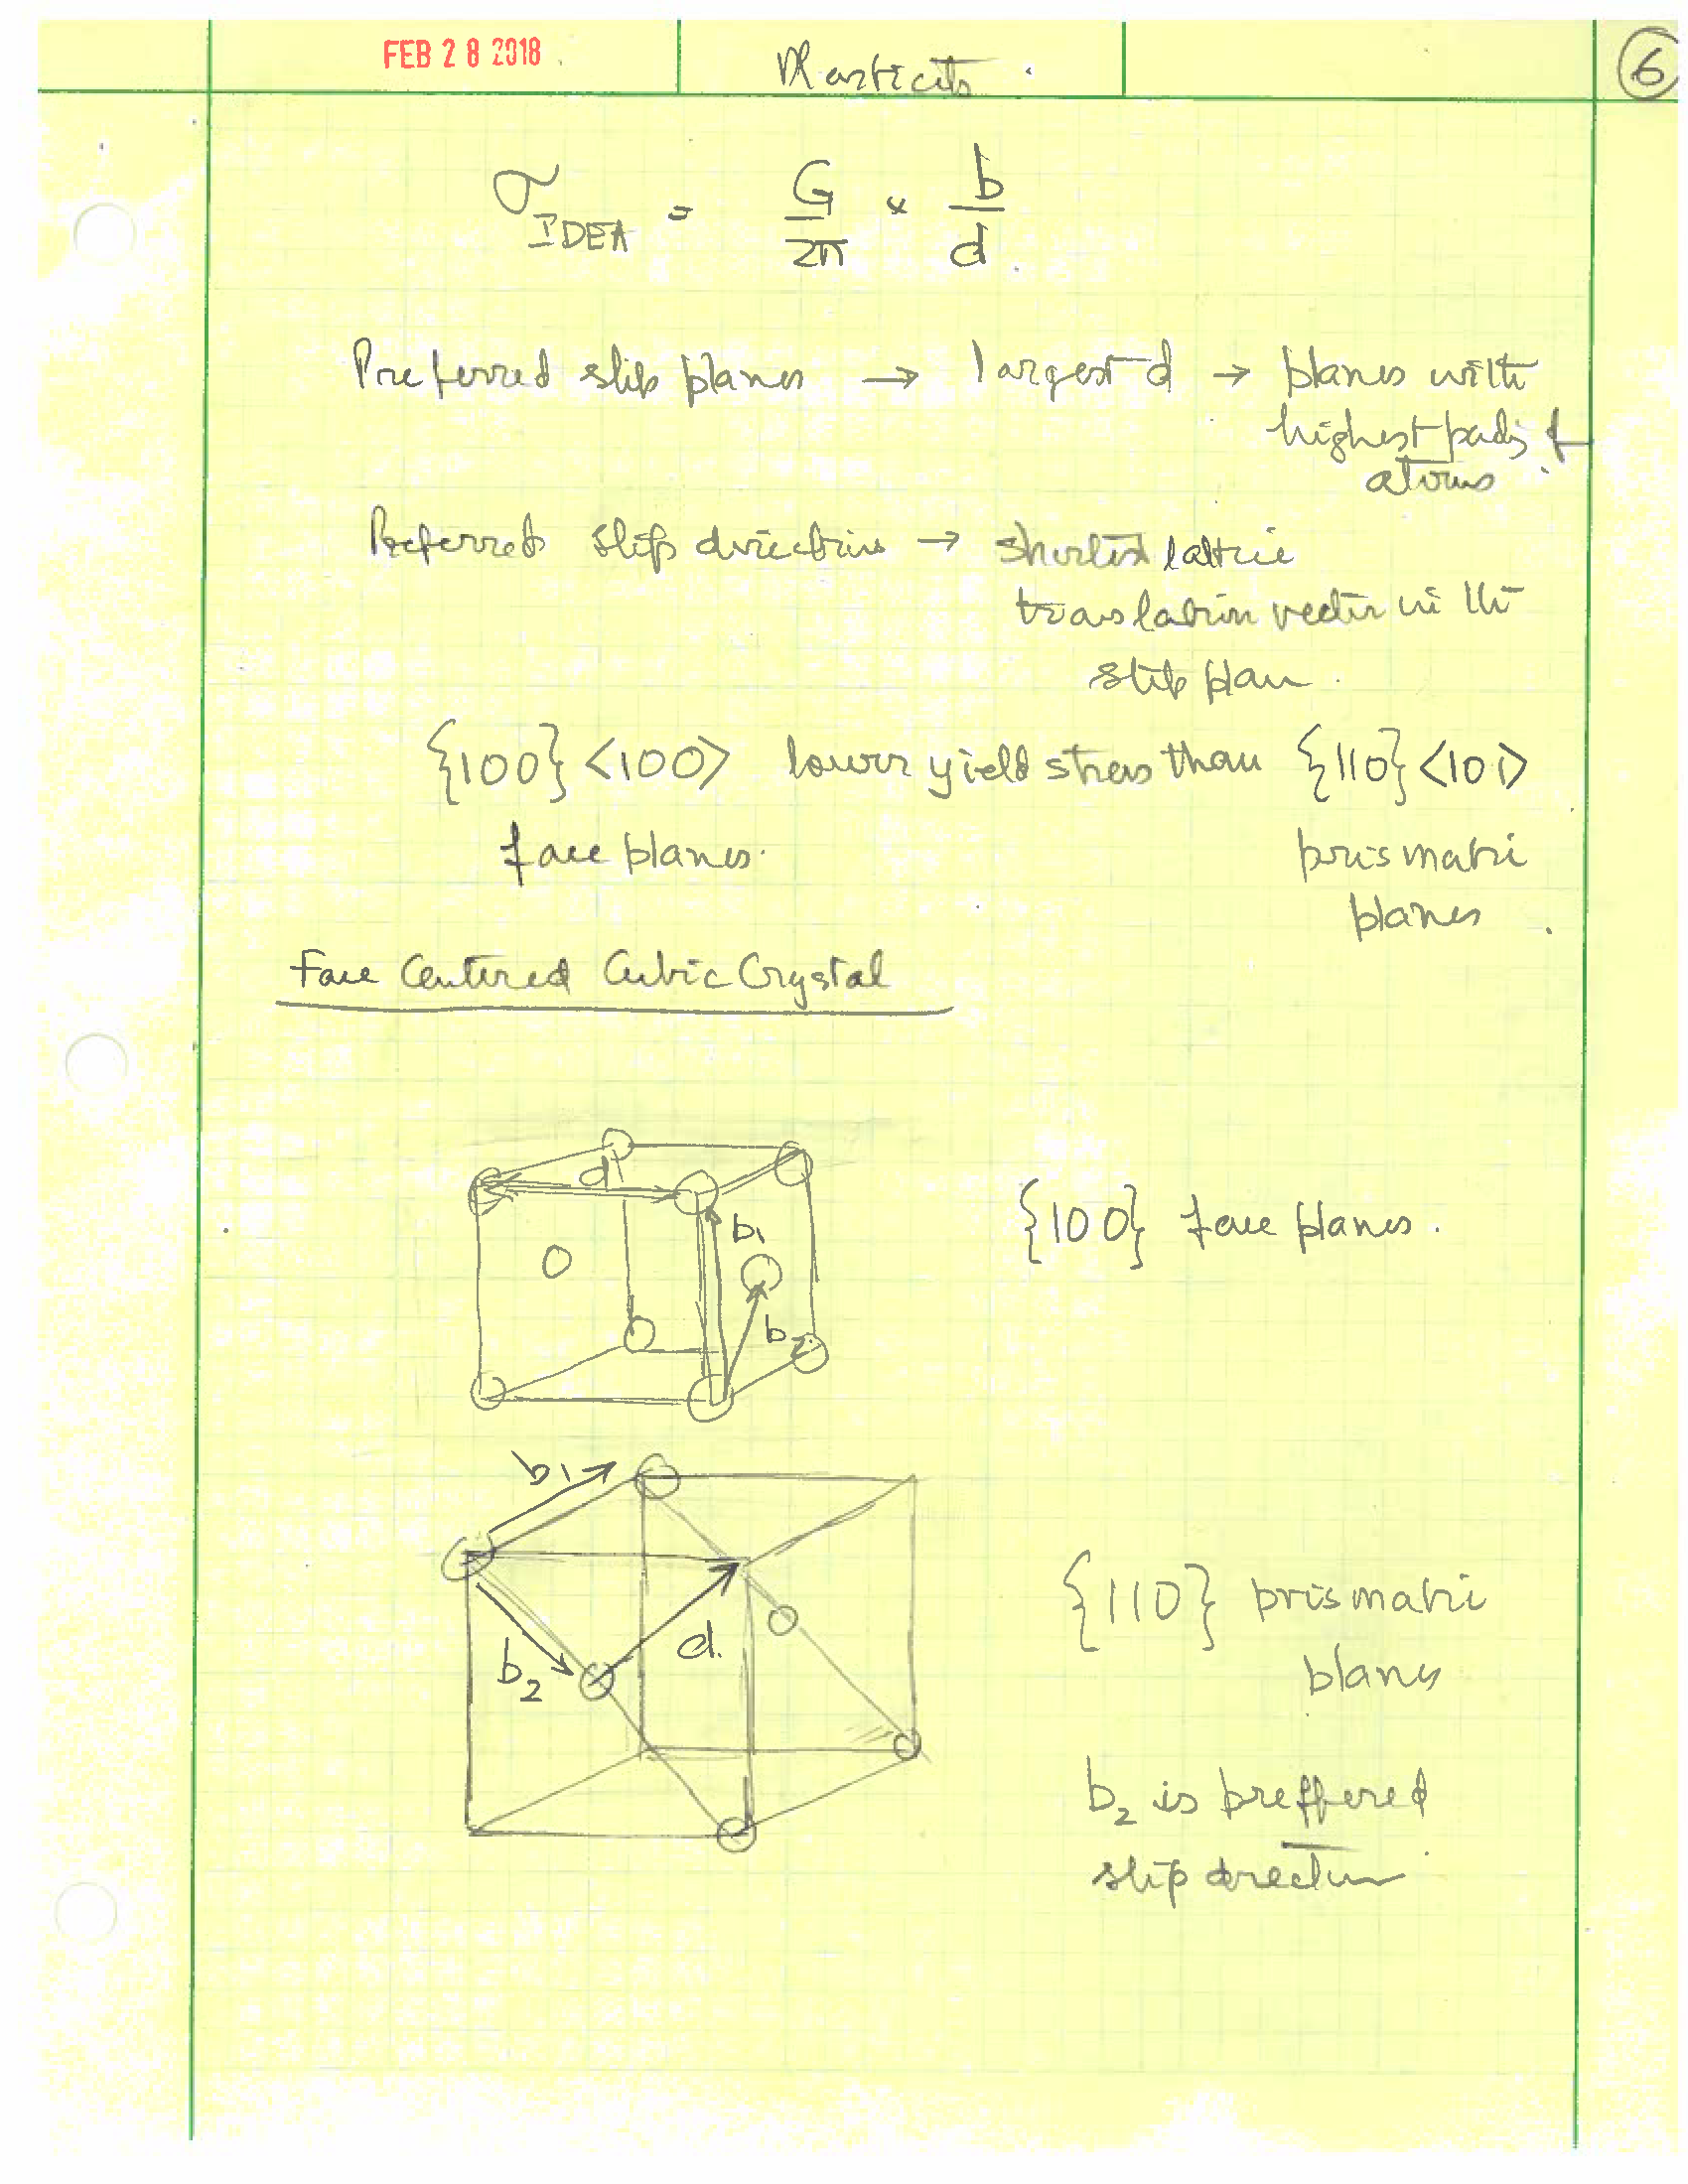 FEB 28 2018
Plasticity
6
σ IDEA = G/2π × b/d
Preferred slip planes → largest d → planes with
highest of
atoms.
Preferred slip directions → shortest lattice
translation vector in the
slip plan.
{100} <100> lower yield stress than {110} <101>
face planes. prismatic
planes.
Face Centered Cubic Crystal
d
b1
b2
{100} face planes.
b1
b2
d.
{110} prismatic
planes
b2 is preffered
slip direction